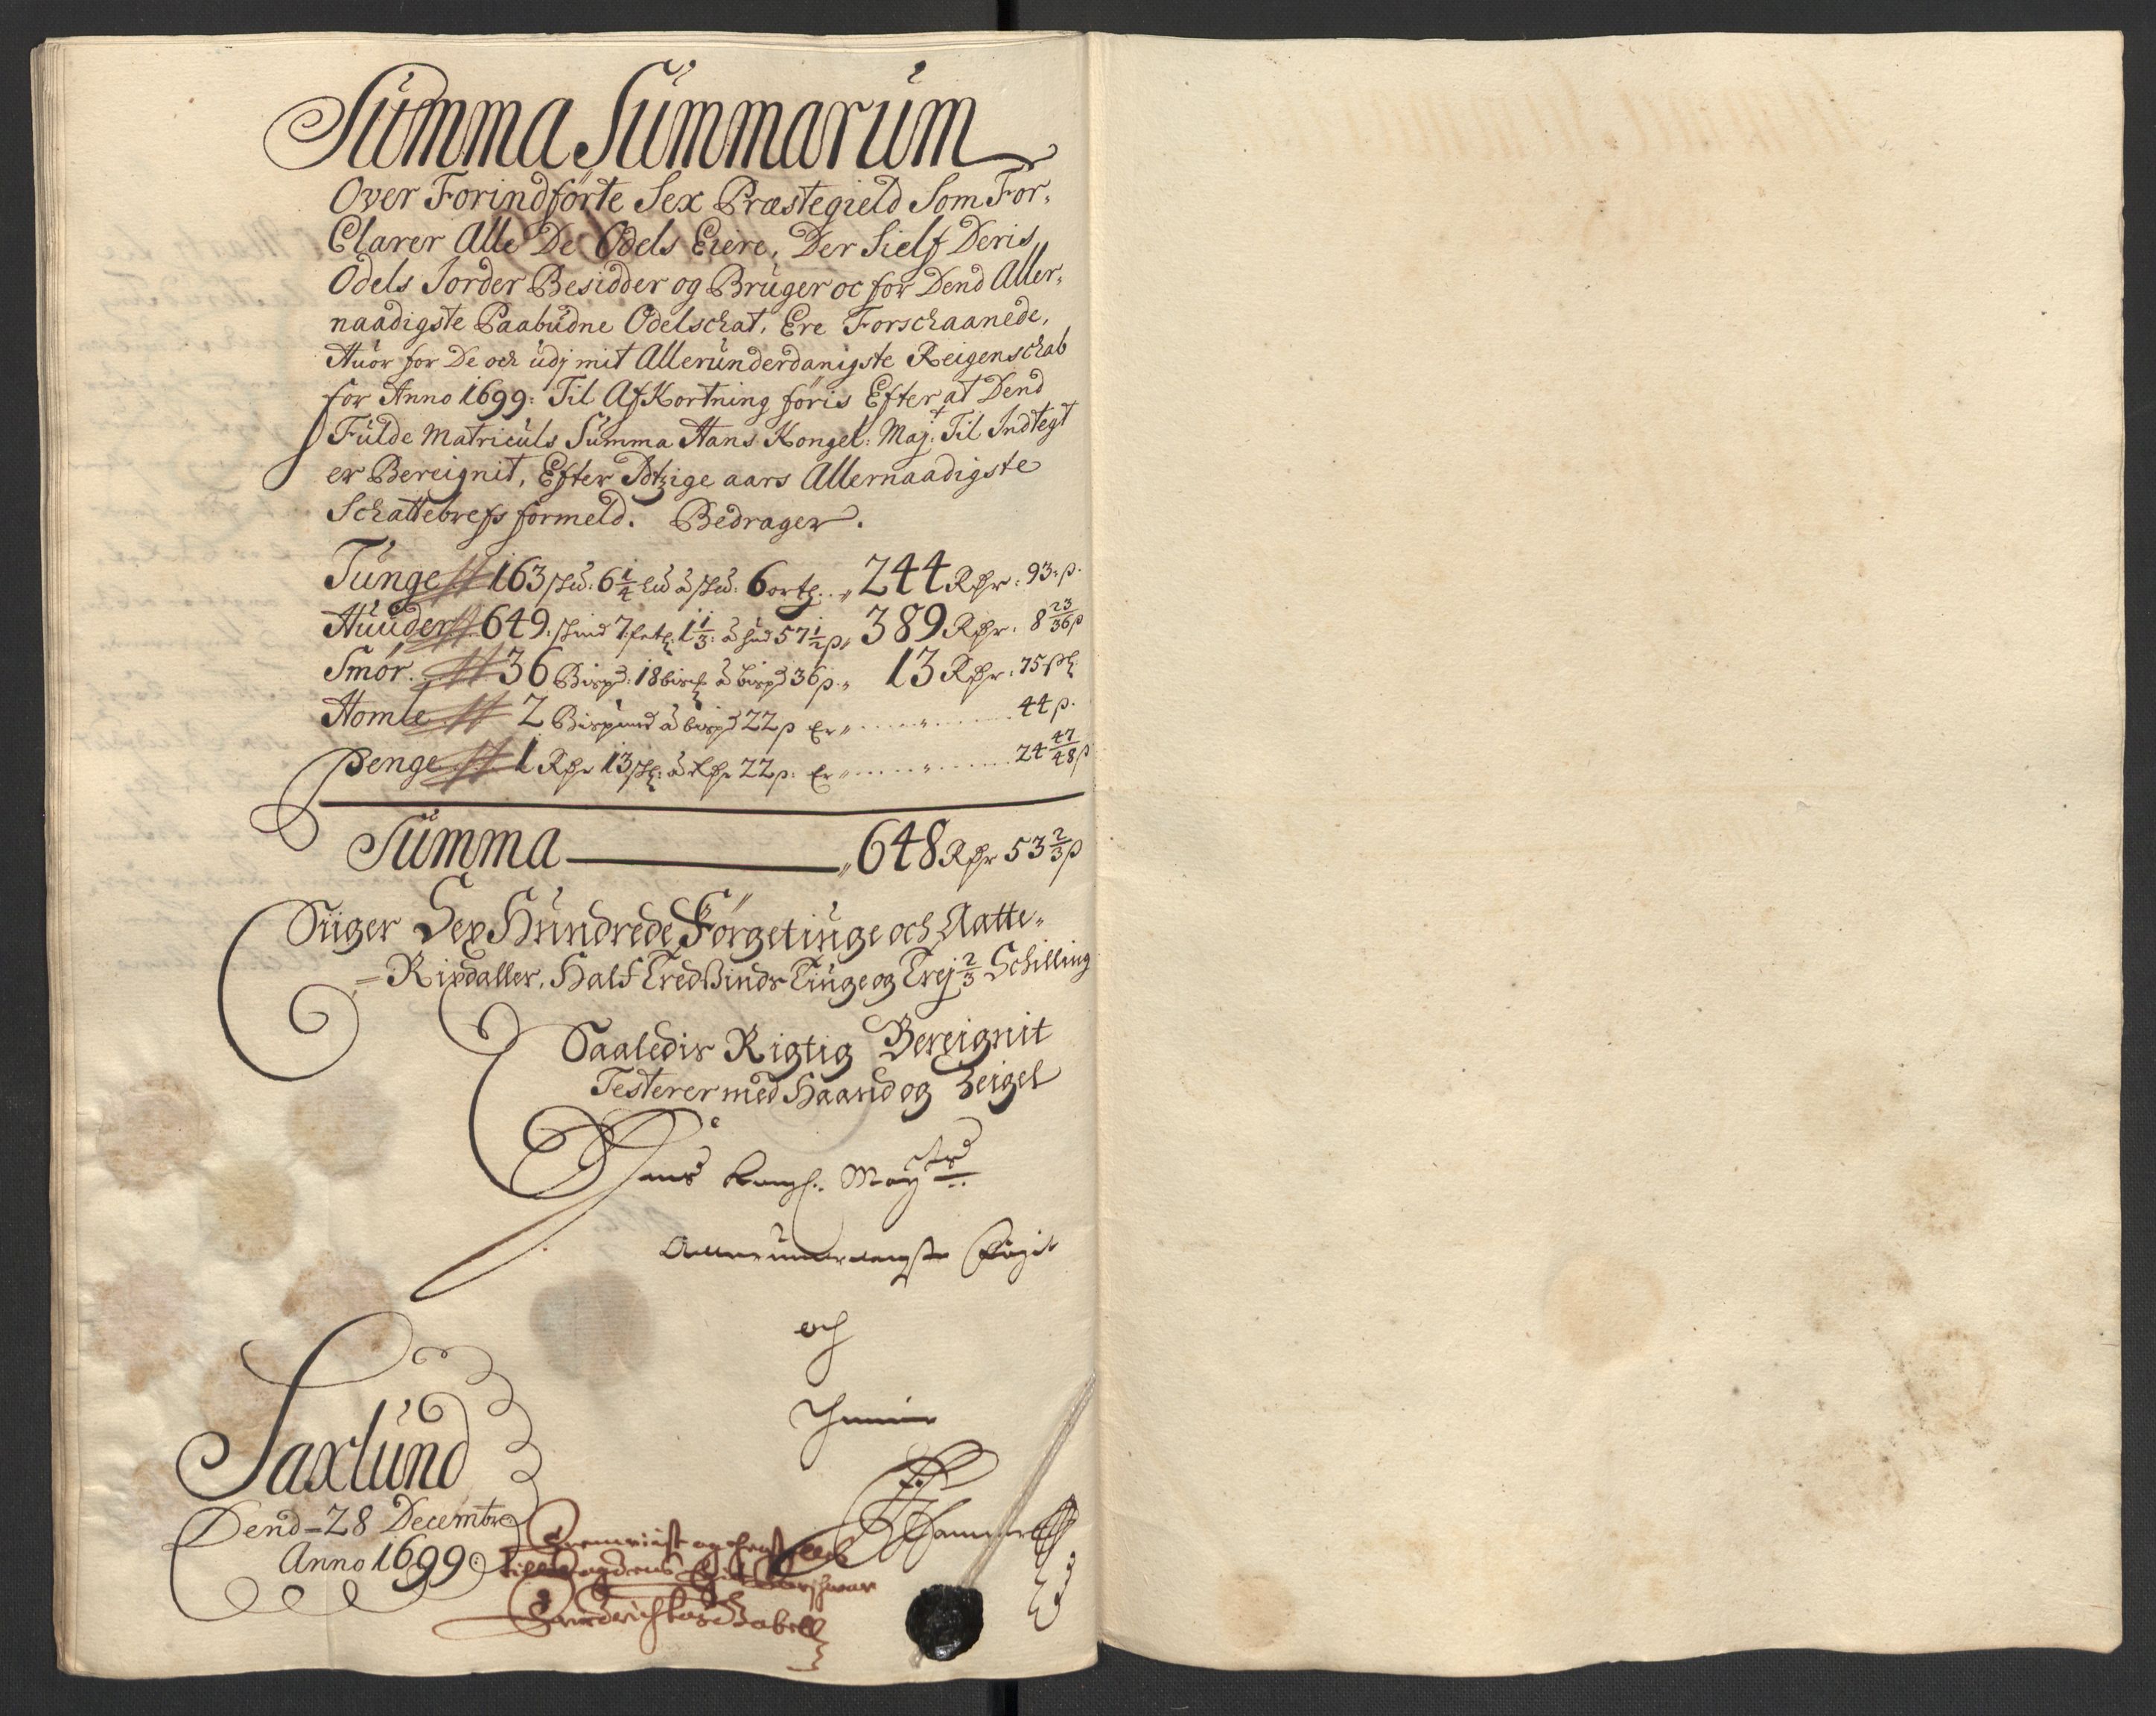 Summa Summarum
Over Forindförte Sex Præstegield Som For-
Clarer Alle De Odels Eiere, Der Sielf Deris
Odels Jorder Besidder og Bruger oc for Dend Aller-
naadigste Paabudne Odelschat, Ere Forschaanede,
Huor for De och udj mit Allerunderdanigste Reigenschab
for Anno 1699: Til AfKortning föris Efter at Dend
Fulde Matriculs Summa Hans Kongel: Maj:t Til Indtegt
er Bereignit, Efter Itzige aars Allernaadigste
Schattebrefs formeld. Bedrager.
Tunge 163 Spd: 6 1/4 Ld à Spd: 6 ortg: 244 Rdr: 93: s.
Huuder 649: 7: 1 1/3: à hud 57 1/2 s 389 Rdr: 8 23/36 s
Smör. 36 Bispd: 18 à bispd 36 s. 13 Rdr: 75 s
Homle 2 Bispund à bispd 22 s Er 44 s.
Penge 1 Rdr 13 s: à Rdr 22 s: Er 24 47/48 s
Summa 648 Rdr 53 2/3 s
Siiger Sex Hundrede Förgetiuge och Aatte-
-Rixdaller, Half Tredsinds Tiuge og Trej 2/3 Schilling
Saaledis Rigtig Bereignit
Testerer med Haand og Zeigel
Hans Kongl: May:ts
Allerunderdanigste Fogit
och
Thienner
Saxlund
Dend 28 Decembr:
Anno 1699